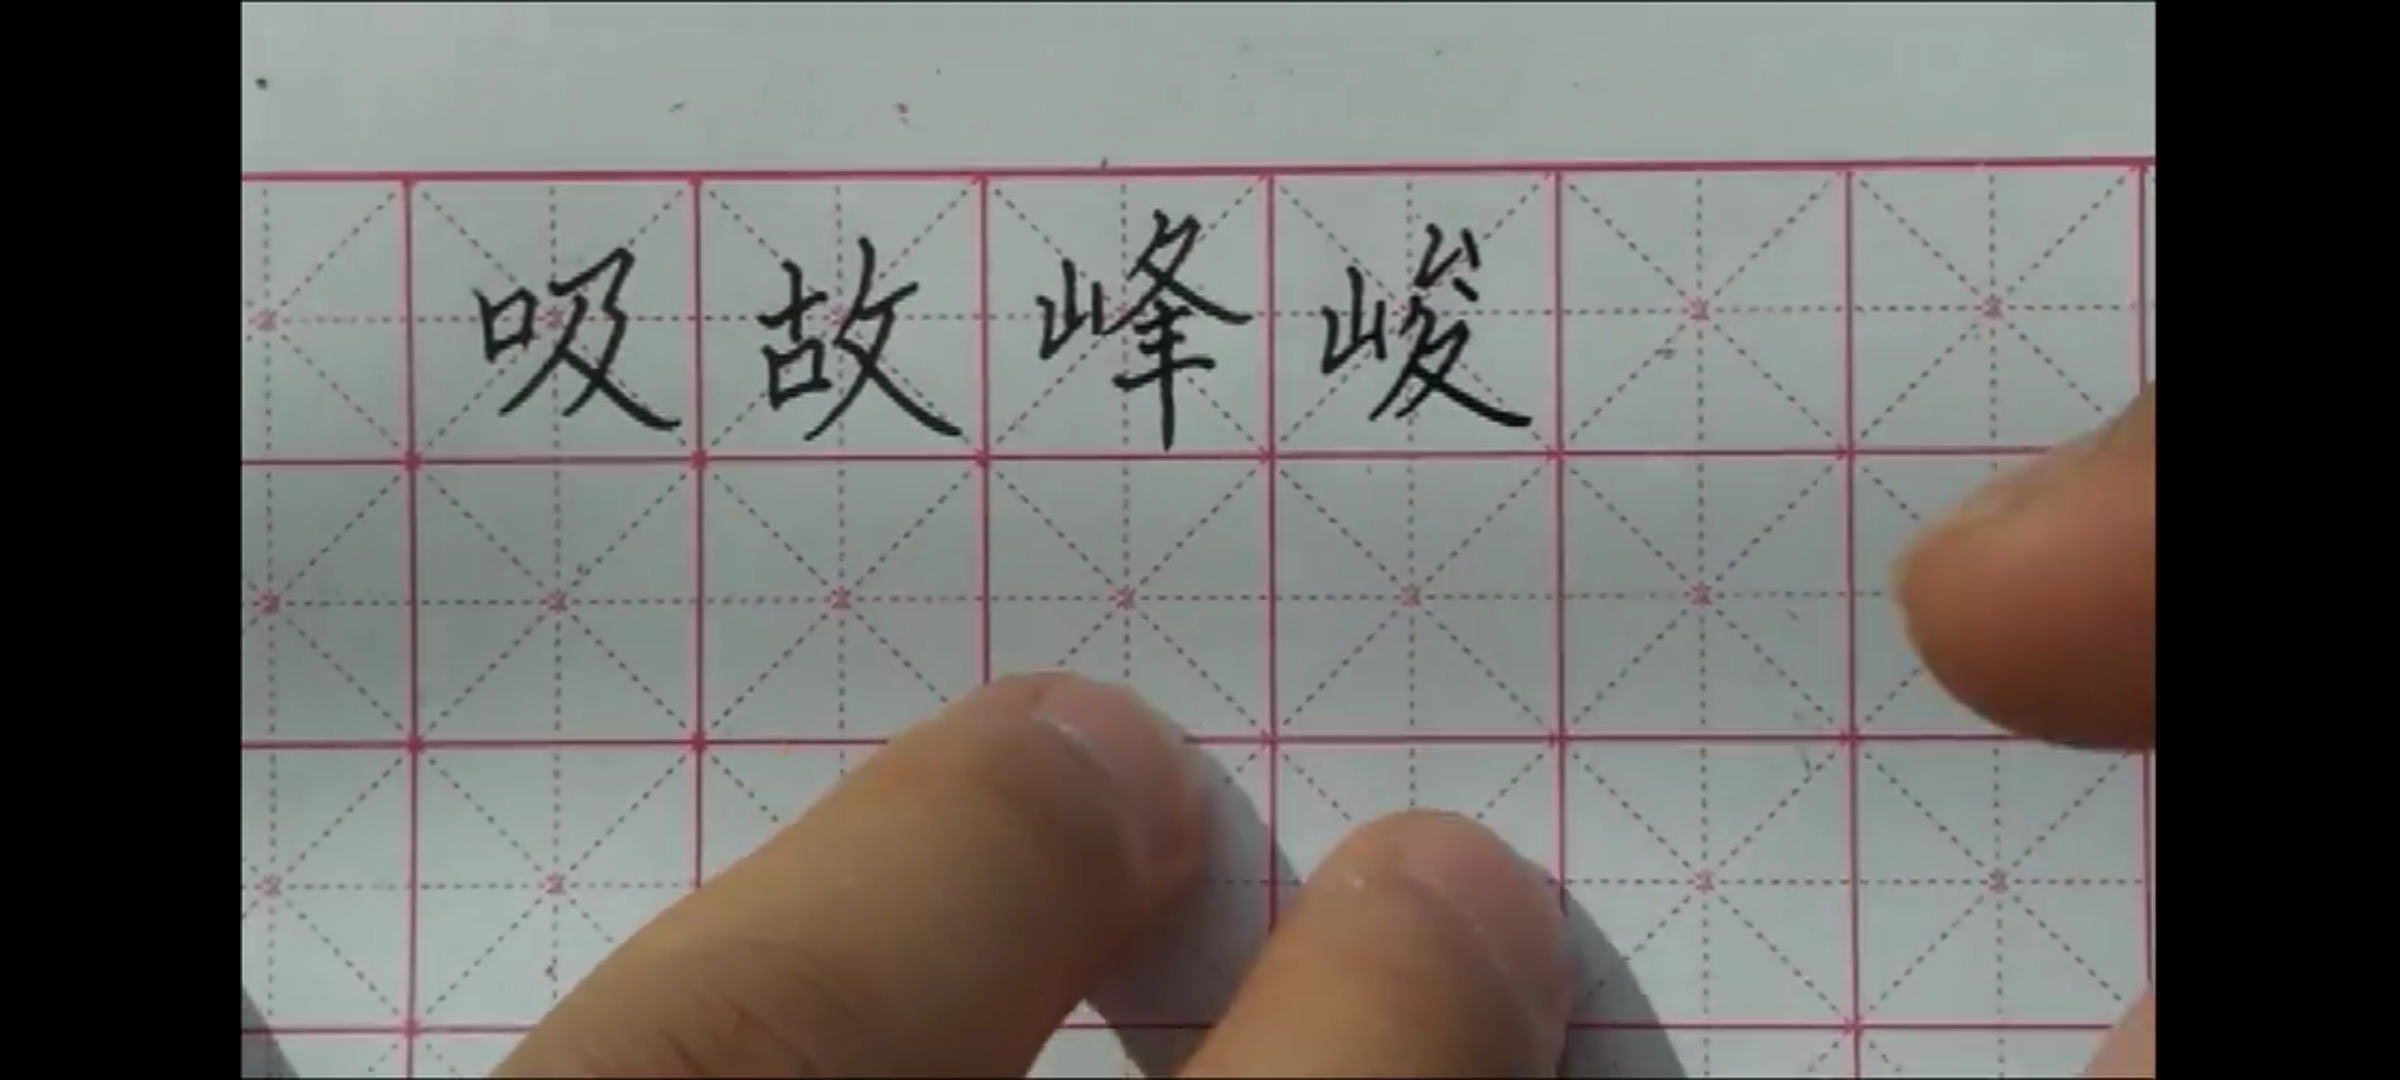 吸故峰峻